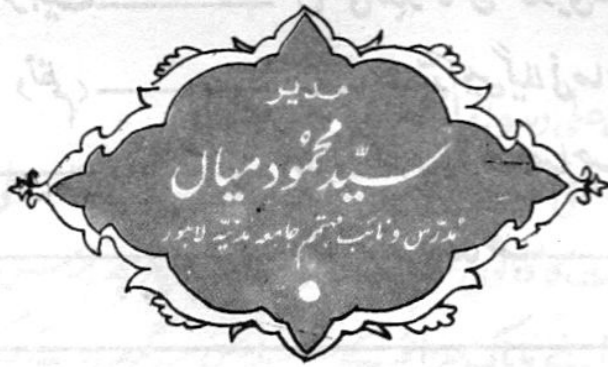 مدیر
سیّد محمُود میاں
مُدرّس و نائب مُہتمم جامعہ مدنیّہ لاہور